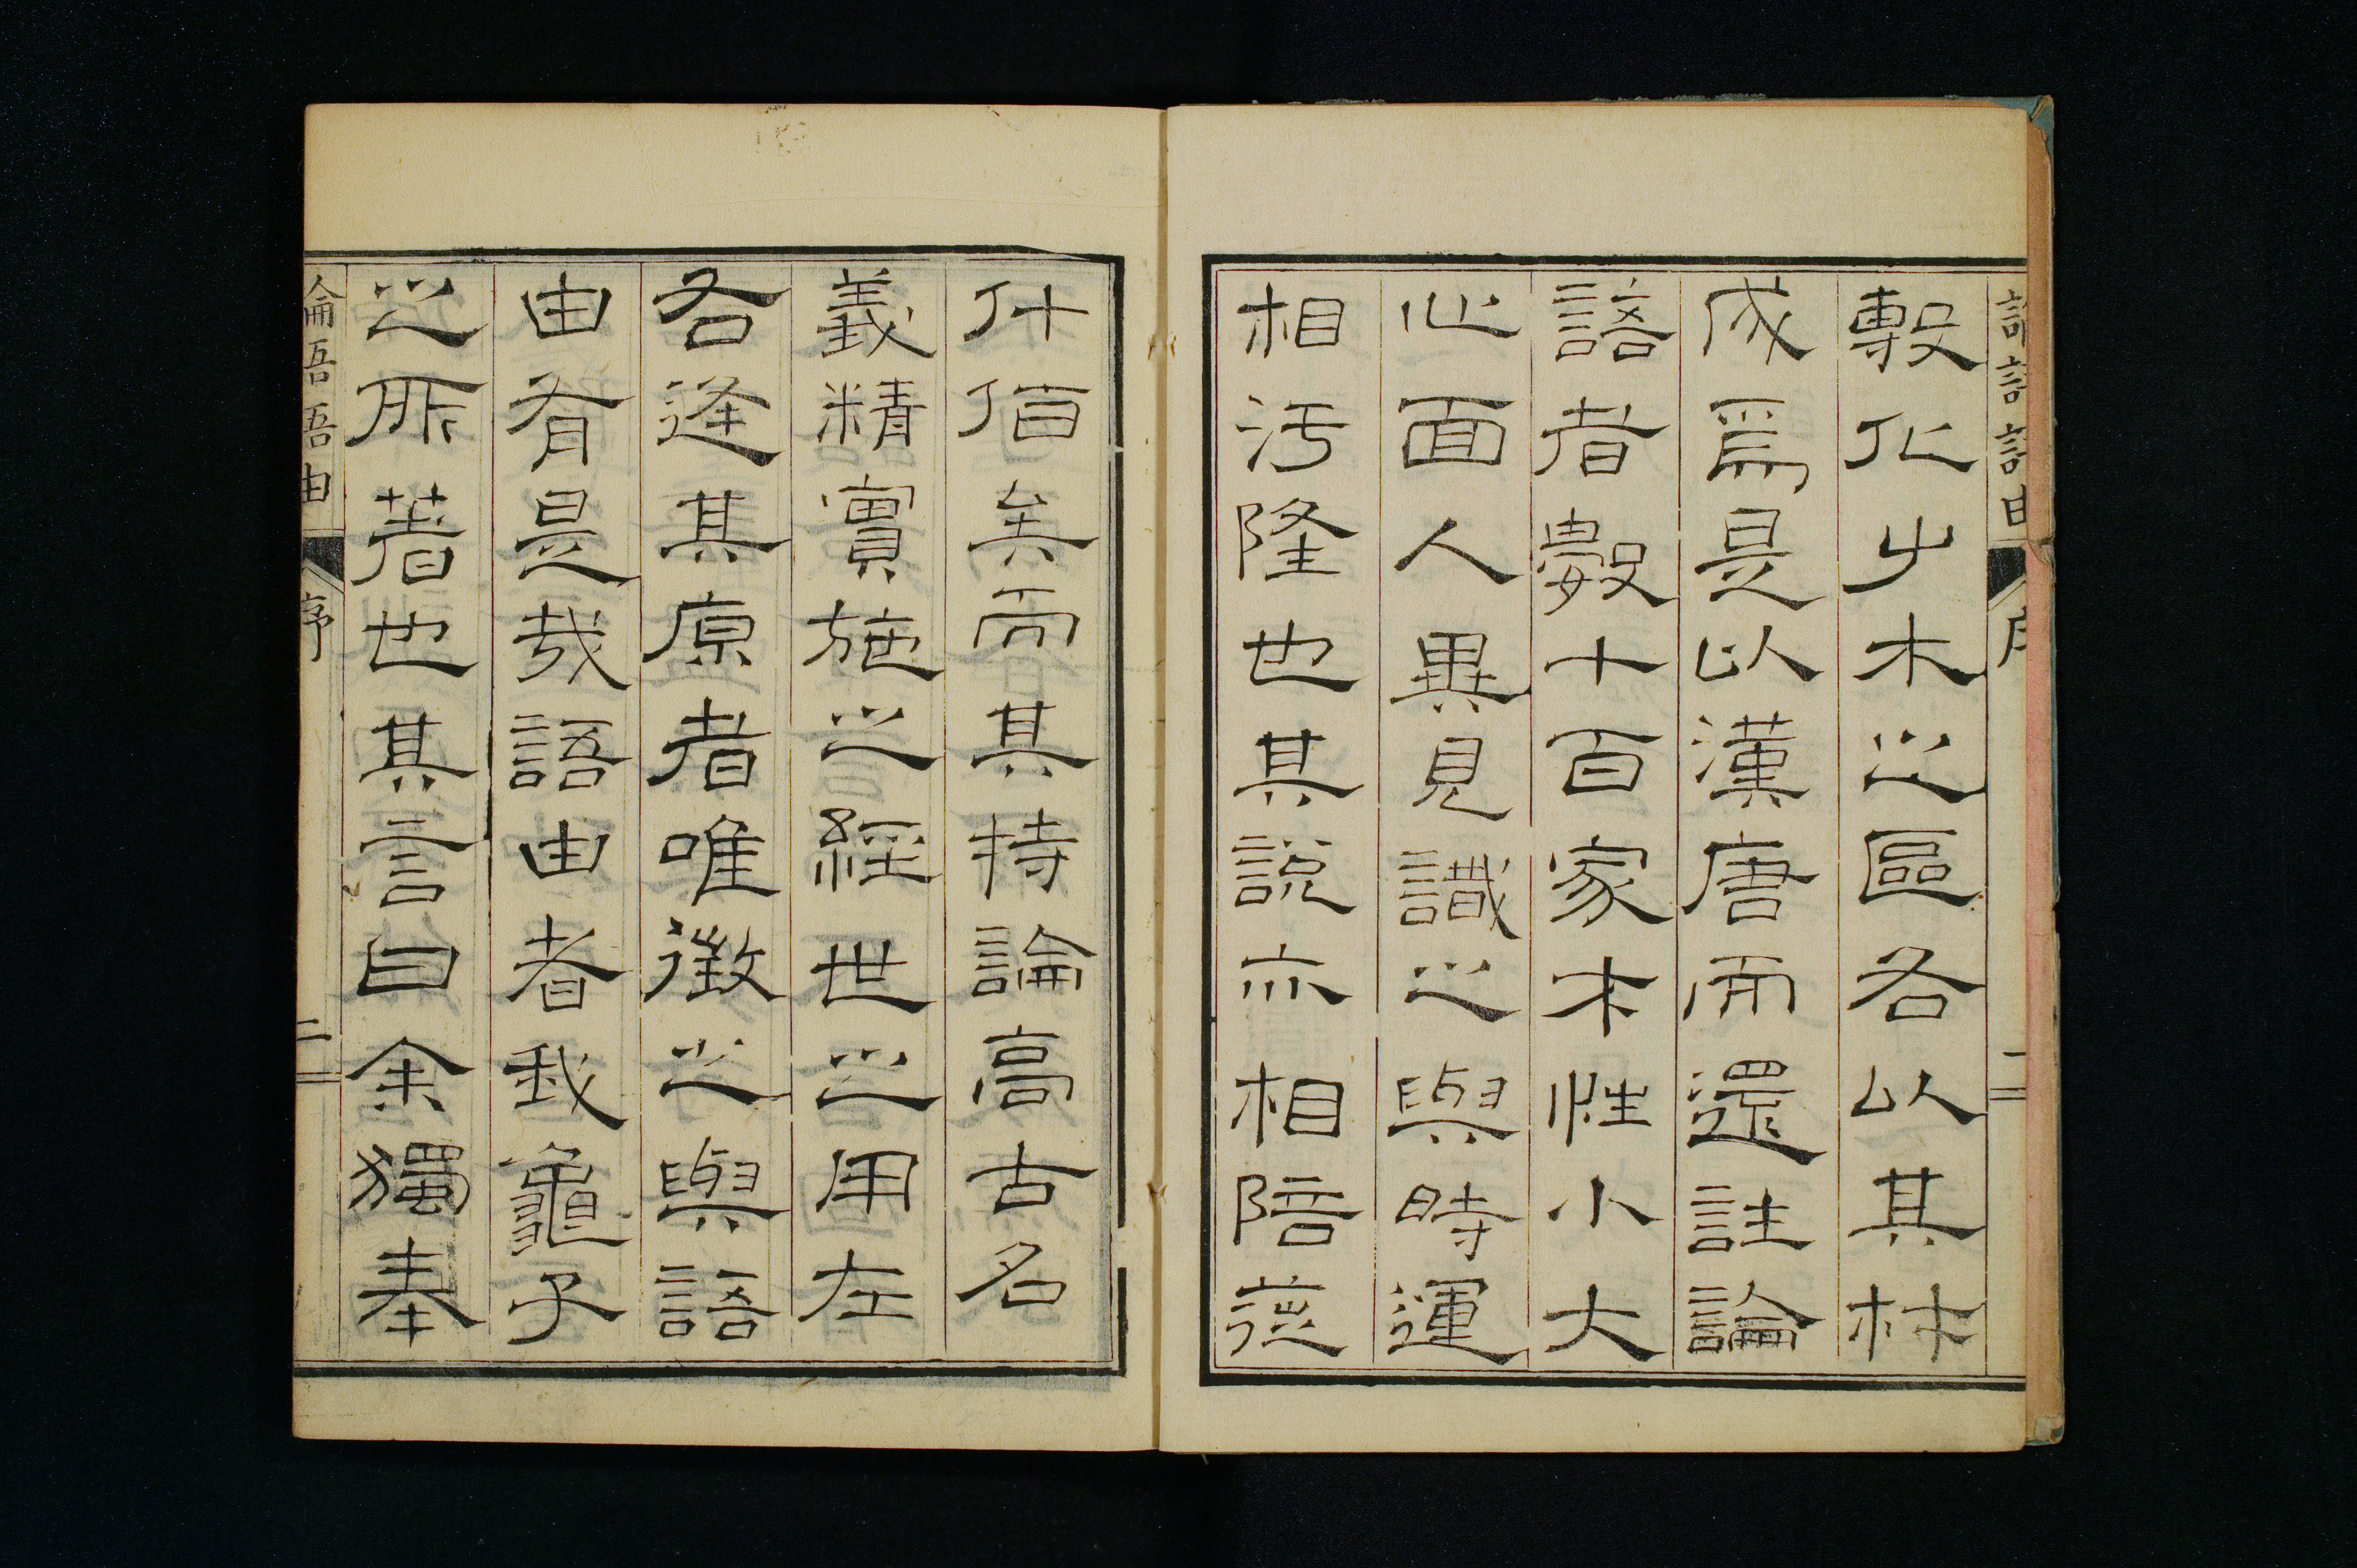 論語語由 序 一
敷化屮木之區各以其材
成焉是以漢唐而還註論
語者數十百家才性小大
心面人異見識之與時運
相汚隆也其說亦相陪蓰
什佰矣而其持論高古名
義精實施之經世之用左
各逢其原者唯徵之與語
由有是哉語由者我龜子
之所著也其言曰余獨奉
論語語由 序 二